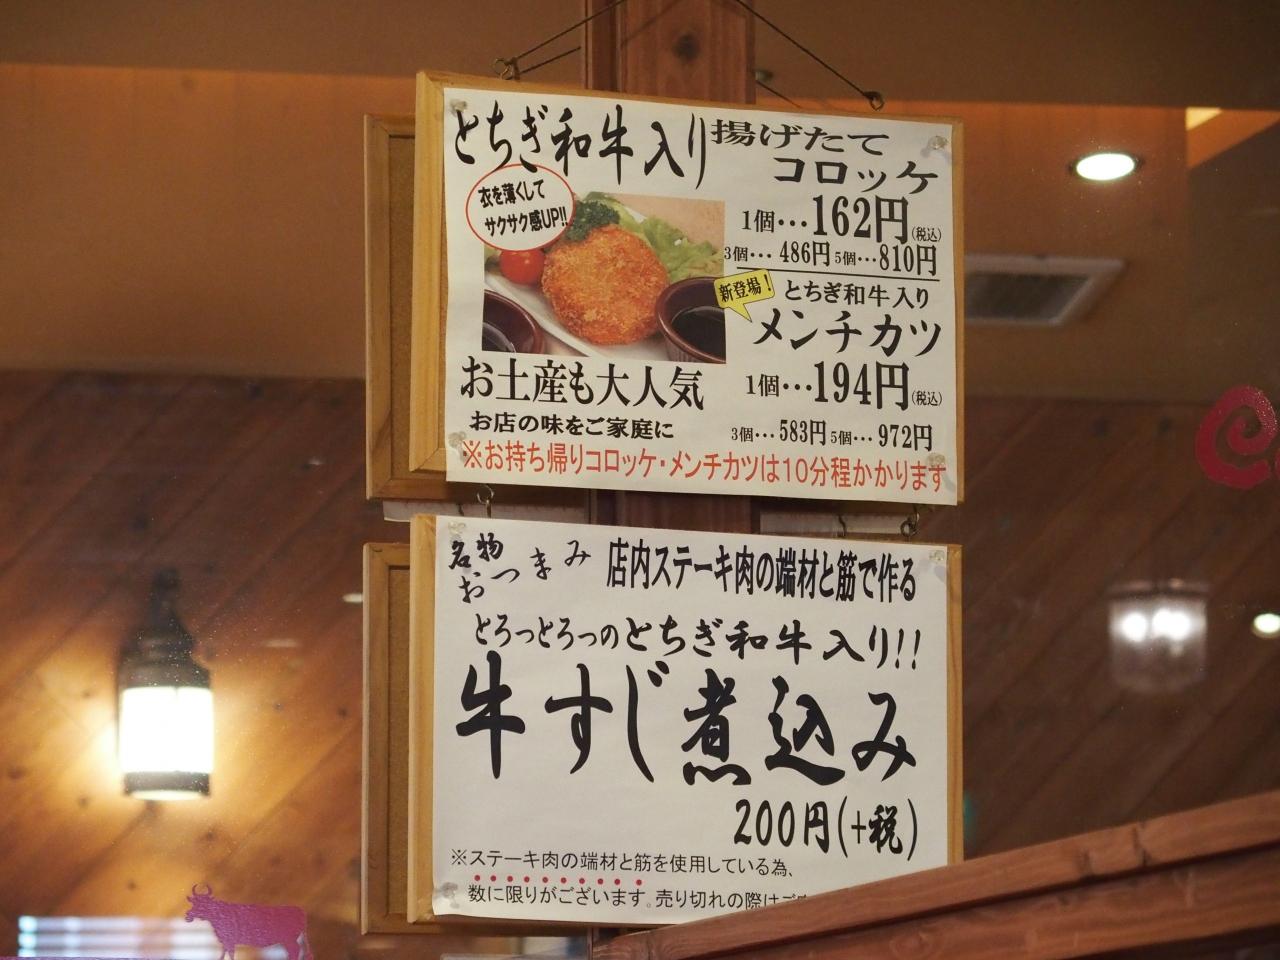 とちぎ和牛入り 揚げたて
コロッケ
衣を薄くして
サクサク感UP!!
1個…162円(税込)
3個…486円 5個…810円
新登場!
とちぎ和牛入り
メンチカツ
1個…194円(税込)
3個…583円 5個…972円
お土産も大人気
お店の味をご家庭に
※お持ち帰りコロッケ・メンチカツは10分程かかります
名物
おつまみ
店内ステーキ肉の端材と筋で作る
とろっとろっのとちぎ和牛入り!!
牛すじ煮込み
200円(+税)
※ステーキ肉の端材と筋を使用している為、
数に限りがございます。売り切れの際はご